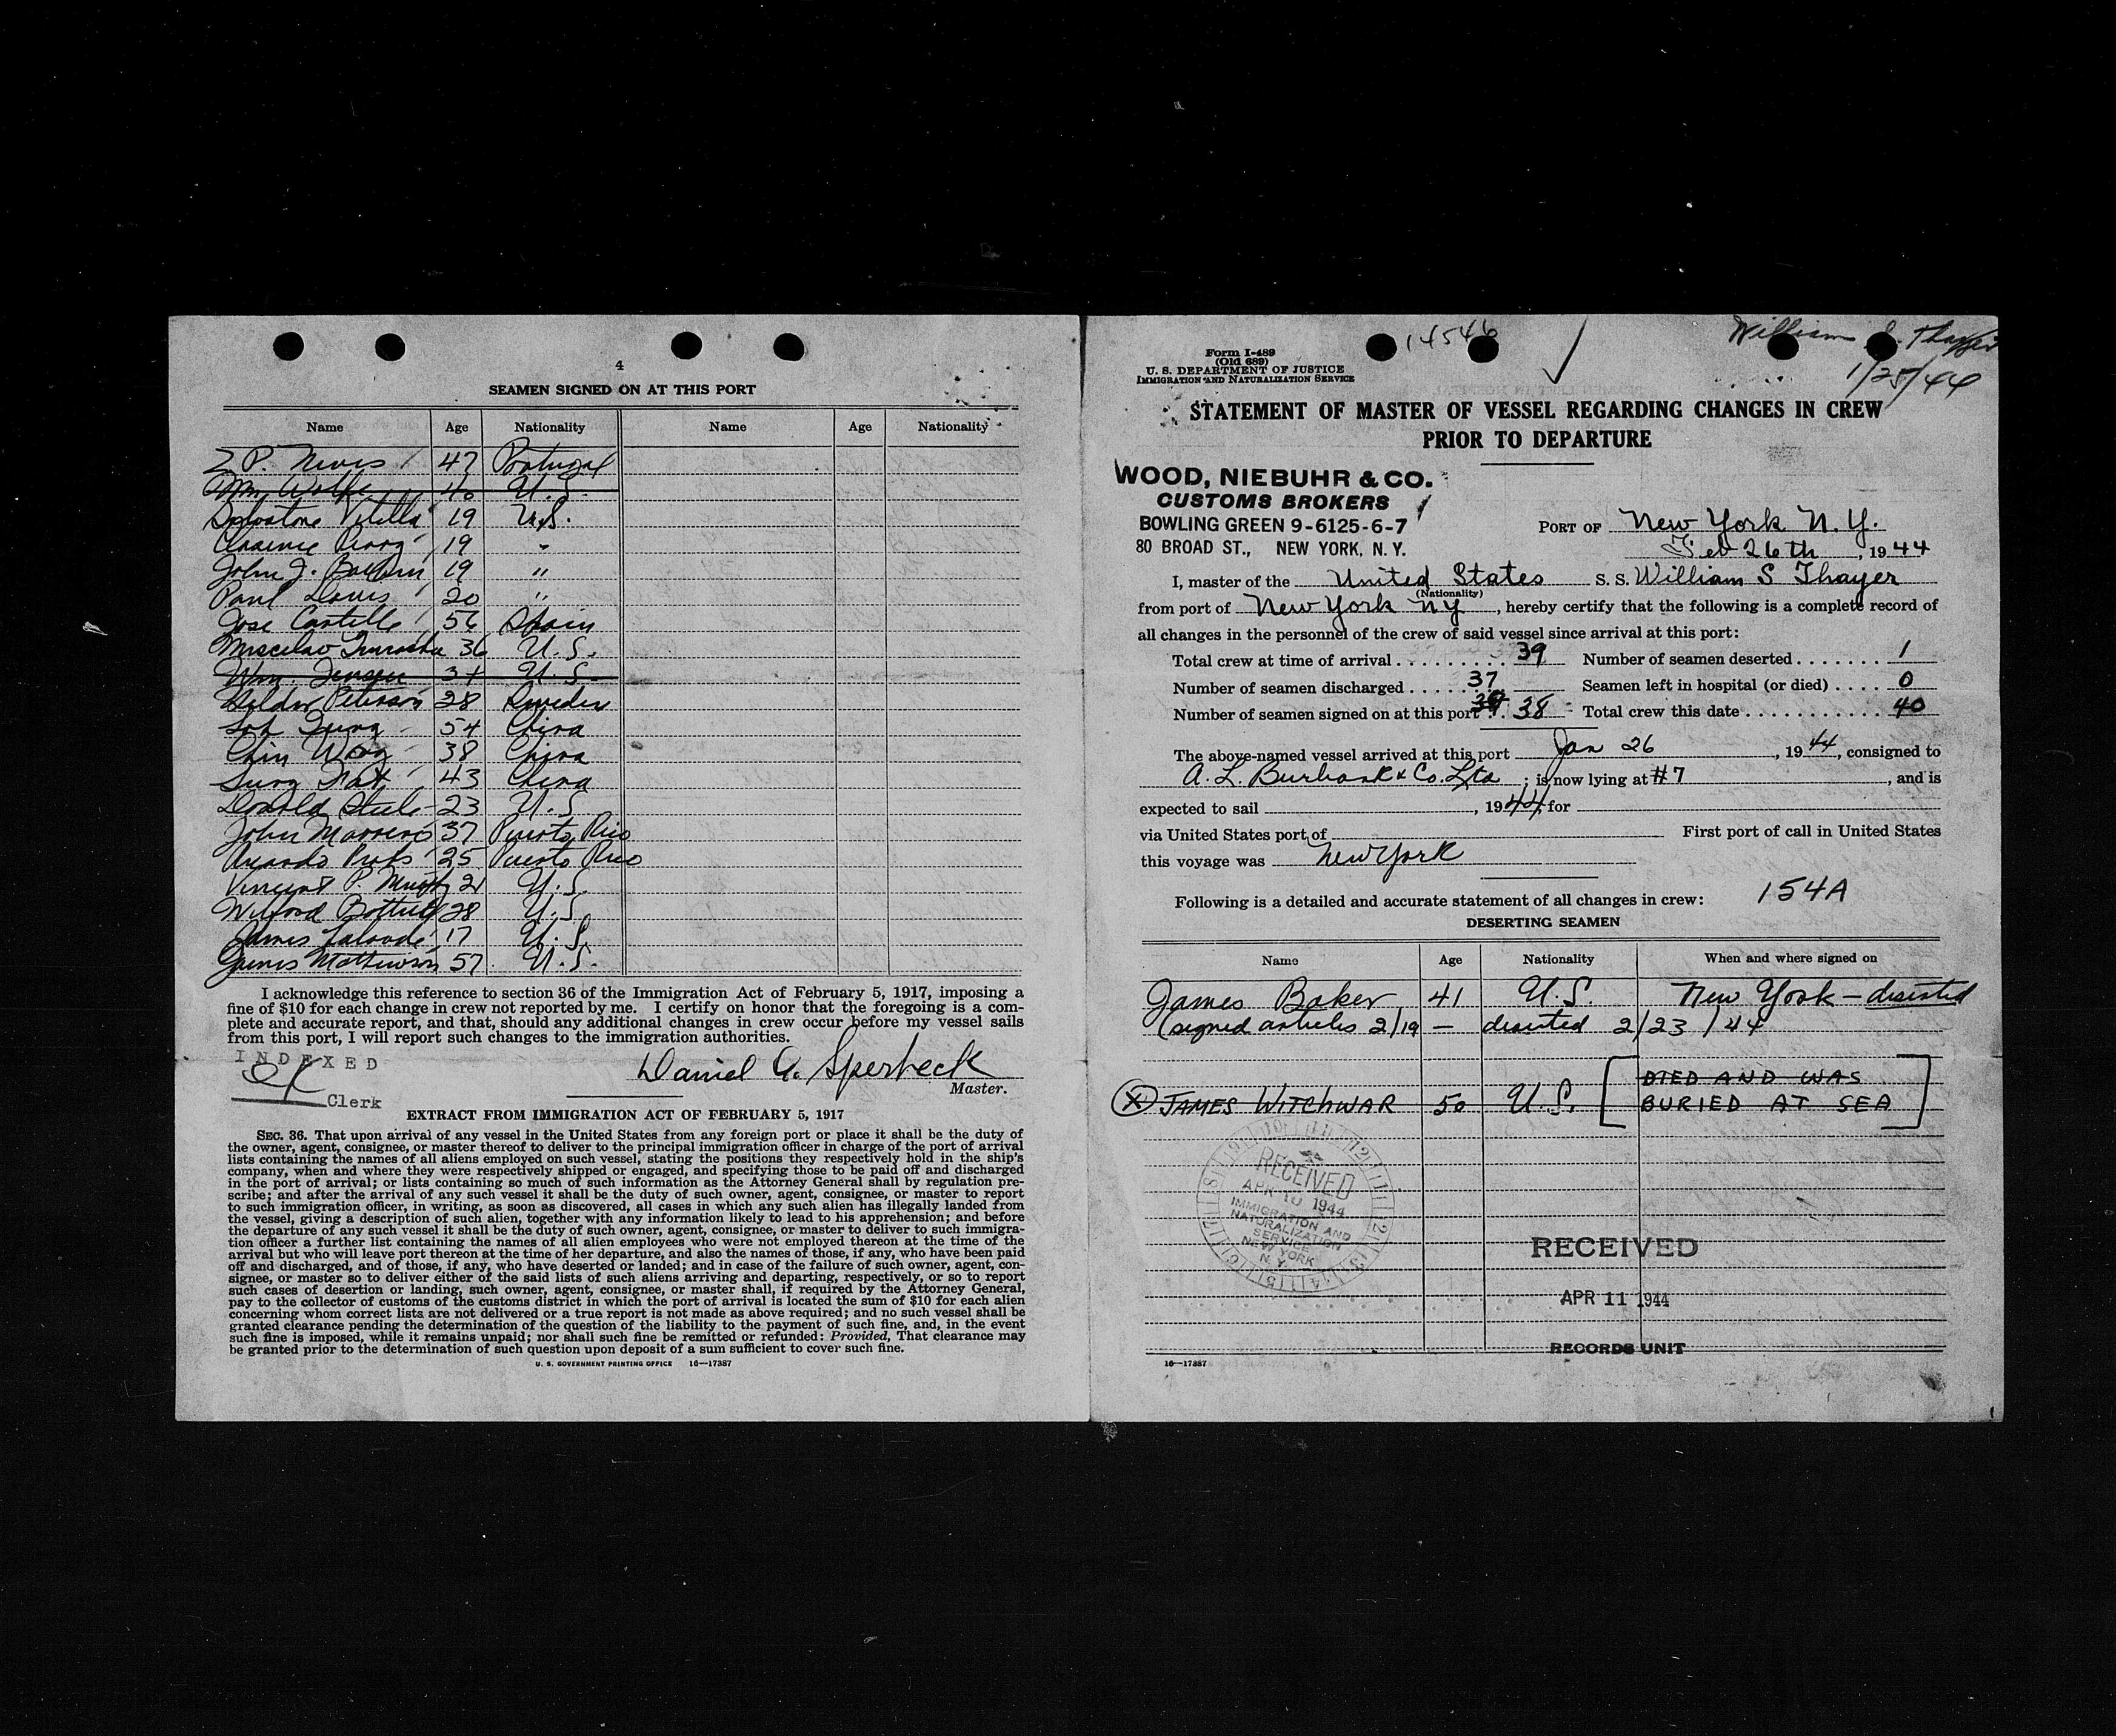 4
SEAMEN SIGNED ON AT THIS PORT
Name Age Nationality Name Age Nationality
P. Neves 47 Portugal
Wm Wolfe 40 U.S.
Salvatore Vitilla 19 U.S.
Clarence Perry 19 "
John J. 19 "
Paul Davis 20 "
Jose Castillo 56 Spain
36 U.S.
Wm. Jensen 34 U.S.
Peterson 28 Sweden
Loh Sung 54 China
Chin Wong 38 China
43 China
Donald Steele 23 U.S.
John Marrero 37 Puerto Rico
25 Puerto Rico
Vincent P. Murphy 21 U.S.
Wilfood 28 U.S.
James 17 U.S.
James Mathewson 57 U.S.
I acknowledge this reference to section 36 of the Immigration Act of February 5, 1917, imposing a
fine of $10 for each change in crew not reported by me. I certify on honor that the foregoing is a com-
plete and accurate report, and that, should any additional changes in crew occur before my vessel sails
from this port, I will report such changes to the immigration authorities.
INDEXED
Clerk
Daniel A. Sperbeck
Master.
EXTRACT FROM IMMIGRATION ACT OF FEBRUARY 5, 1917
SEC. 36. That upon arrival of any vessel in the United States from any foreign port or place it shall be the duty of
the owner, agent, consignee, or master thereof to deliver to the principal immigration officer in charge of the port of arrival
lists containing the names of all aliens employed on such vessel, stating the positions they respectively hold in the ship's
company, when and where they were respectively shipped or engaged, and specifying those to be paid off and discharged
in the port of arrival; or lists containing so much of such information as the Attorney General shall by regulation pre-
scribe; and after the arrival of any such vessel it shall be the duty of such owner, agent, consignee, or master to report
to such immigration officer, in writing, as soon as discovered, all cases in which any such alien has illegally landed from
the vessel, giving a description of such alien, together with any information likely to lead to his apprehension; and before
the departure of any such vessel it shall be the duty of such owner, agent, consignee, or master to deliver to such immigra-
tion officer a further list containing the names of all alien employees who were not employed thereon at the time of the
arrival but who will leave port thereon at the time of her departure, and also the names of those, if any, who have been paid
off and discharged, and of those, if any, who have deserted or landed; and in case of the failure of such owner, agent, con-
signee, or master so to deliver either of the said lists of such aliens arriving and departing, respectively, or so to report
such cases of desertion or landing, such owner, agent, consignee, or master shall, if required by the Attorney General,
pay to the collector of customs of the customs district in which the port of arrival is located the sum of $10 for each alien
concerning whom correct lists are not delivered or a true report is not made as above required; and no such vessel shall be
granted clearance pending the determination of the question of the liability to the payment of such fine, and, in the event
such fine is imposed, while it remains unpaid; nor shall such fine be remitted or refunded: Provided, That clearance may
be granted prior to the determination of such question upon deposit of a sum sufficient to cover such fine.
U. S. GOVERNMENT PRINTING OFFICE 16—17387
14546
William S. Thayer
1/25/44
Form I-489
(Old 689)
U. S. DEPARTMENT OF JUSTICE
IMMIGRATION AND NATURALIZATION SERVICE
STATEMENT OF MASTER OF VESSEL REGARDING CHANGES IN CREW
PRIOR TO DEPARTURE
WOOD, NIEBUHR & CO.
CUSTOMS BROKERS
BOWLING GREEN 9-6125-6-7
80 BROAD ST., NEW YORK, N. Y.
PORT OF New York N.Y.
Feb 26th, 1944
I, master of the United States S. S. William S Thayer
(Nationality)
from port of New York NY, hereby certify that the following is a complete record of
all changes in the personnel of the crew of said vessel since arrival at this port:
Total crew at time of arrival 39 Number of seamen deserted 1
Number of seamen discharged 37 Seamen left in hospital (or died) 0
Number of seamen signed on at this port 38 Total crew this date 40
The above-named vessel arrived at this port Jan 26, 1944, consigned to
A. L. Burbank & Co. Ltd; is now lying at #7, and is
expected to sail , 1944, for
via United States port of First port of call in United States
this voyage was New York
Following is a detailed and accurate statement of all changes in crew: 154A
DESERTING SEAMEN
Name Age Nationality When and where signed on
James Baker 41 U.S. New York — deserted
(signed articles 2/19 — deserted 2/23/44
DIED AND WAS
X JAMES WITCHWAR 50 U.S. BURIED AT SEA
RECEIVED
APR 10 1944
IMMIGRATION AND
NATURALIZATION
SERVICE
NEW YORK
N. Y.
RECEIVED
APR 11 1944
RECORDS UNIT
16—17387